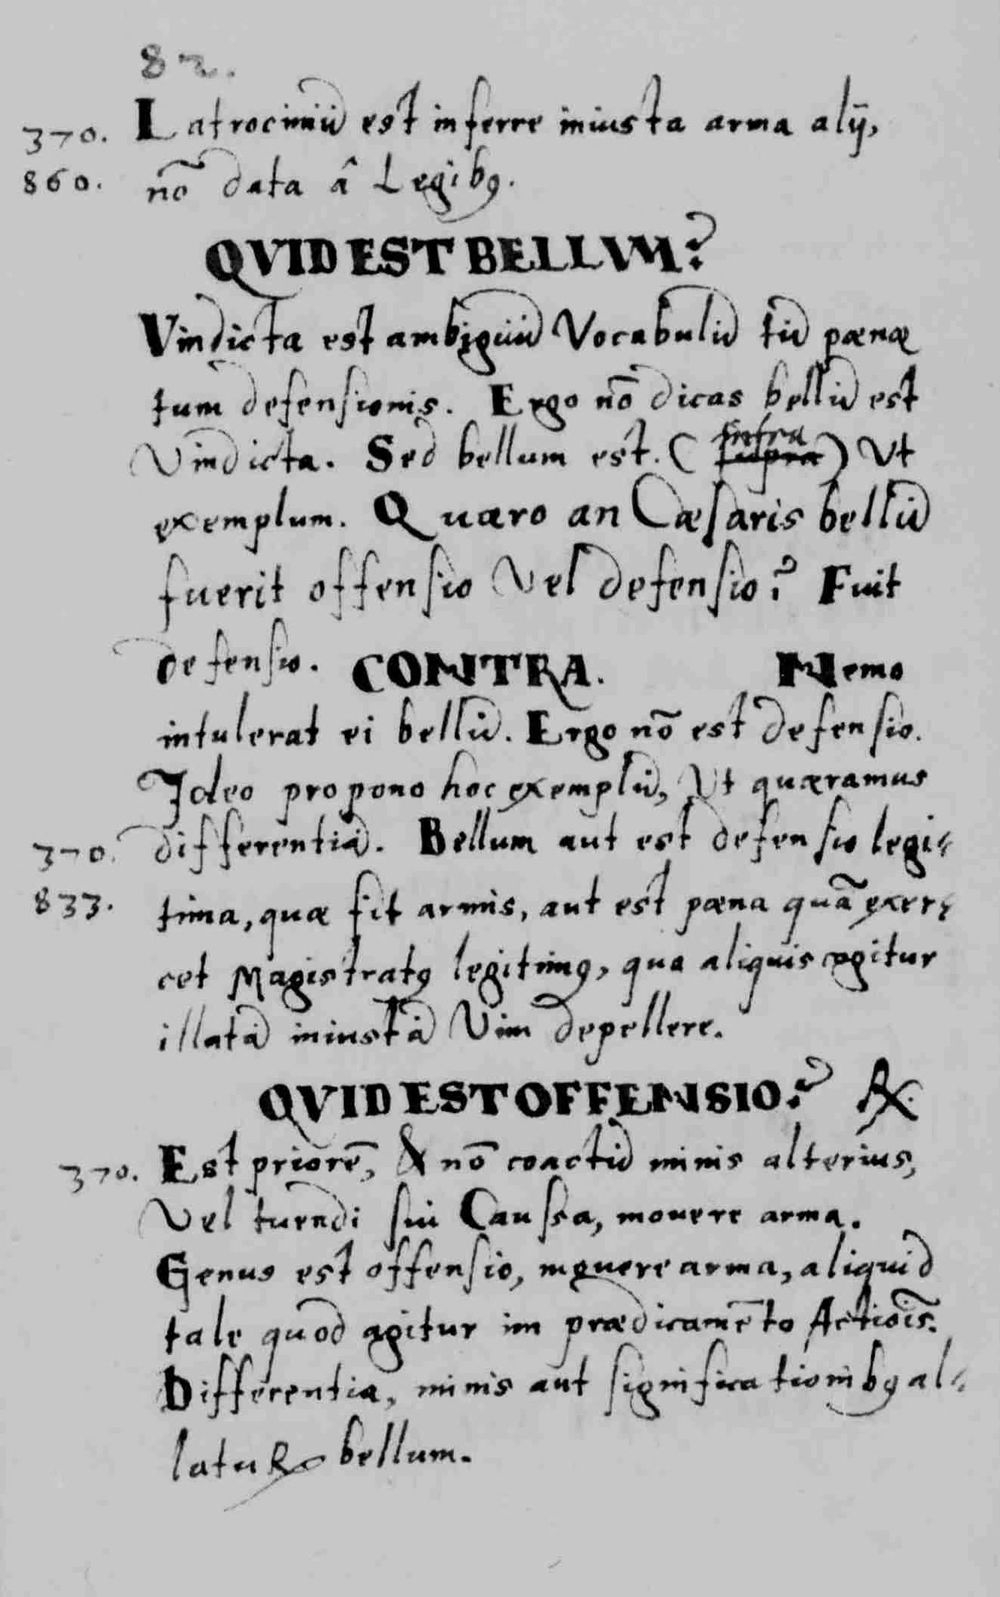 82.
370. Latrociniū est inferre iniusta arma alij,
860. nō data â Legibꝯ.
QVID EST BELLVM?
Vindicta est ambiguū Vocabulū tū pœnæ
tum defensionis. Ergo nō dicas bellū est
Vindicta. Sed bellum est. (supra infra) Vt
exemplum. Quæro an Cæsaris bellū
fuerit offensio Vel defensio? Fuit
defensio. CONTRA. Nemo
intulerat ei bellū. Ergo nō est defensio.
Ideo propono hoc exemplū, Vt quæramus
370. differentiā. Bellum aut est defensio legi-
833. tima, quæ fit armis, aut est pœna quā exer-
cet Magistratꝯ legitimꝯ, qua aliquis cogitur
illatā iniustā Vim depellere.
QVID EST OFFENSIO? ℞.
370. Est priorē, & nō coactū minis alterius,
Vel tuendi sui Caussa, mouere arma.
Genus est offensio, mouere arma, aliquid
tale quod agitur in prædicamēto Actiōis.
Differentia, minis aut significationibꝯ al-
latuR bellum.